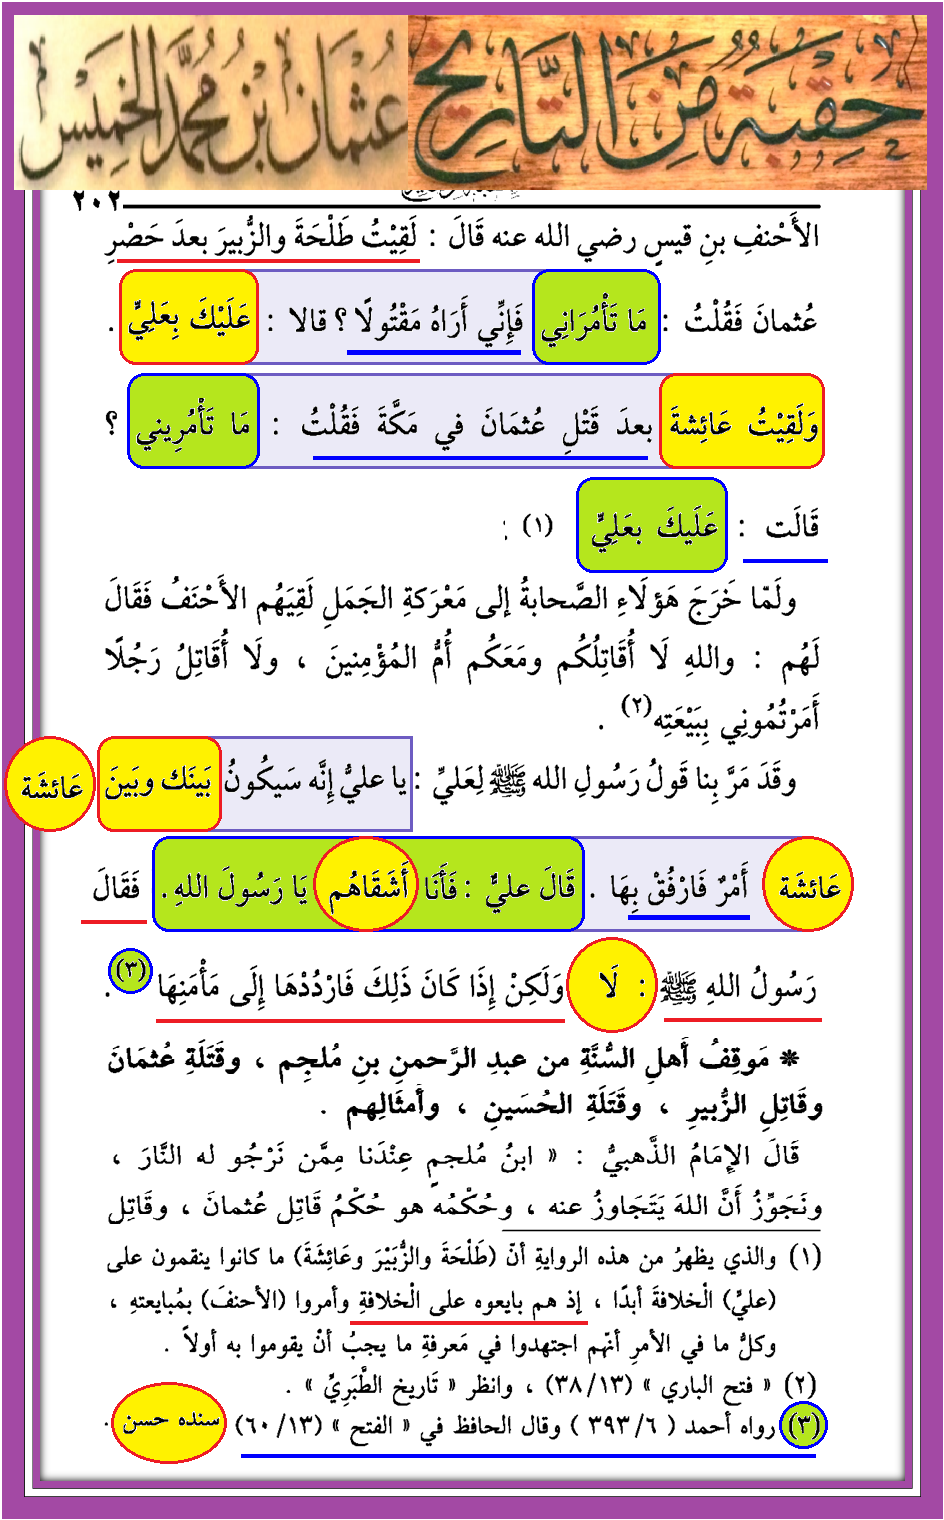 حِقْبَةٌ مِنَ التَّارِيخِ
عُثمَان بْنُ مُحَمَّد الخَمِيس
٢٠٢
الأَحْنفِ بنِ قيسٍ رضي الله عنه قَالَ : لَقِيْتُ طَلْحَةَ والزُّبيرَ بعدَ حَصْرِ
عُثمانَ فَقُلْتُ : مَا تَأْمُرَانِي فَإِنِّي أَرَاهُ مَقْتُولًا ؟ قالا : عَلَيْكَ بِعَلِيٍّ .
وَلَقِيْتُ عَائِشةَ بعدَ قَتْلِ عُثمَانَ في مَكَّةَ فَقُلْتُ : مَا تَأْمُرِيني ؟
قَالَت : عَلَيكَ بعَلِيٍّ (١) .
ولَمّا خَرَجَ هَؤلَاءِ الصَّحابةُ إلى مَعْرَكةِ الجَمَلِ لَقِيَهُم الأَحْنَفُ فَقَالَ
لَهُم : واللهِ لَا أُقَاتِلُكُم ومَعَكُم أُمُّ المُؤْمِنينَ ، ولَا أُقَاتِلُ رَجُلًا
أَمَرْتُمُوني بِبَيْعَتِه(٢) .
وقَدَ مَرَّ بِنا قَولُ رَسُولِ الله ﷺ لِعَليٍّ : يا عليُّ إِنَّه سَيكُونُ بَينَك وبَينَ عَائشَة
عَائشَة أَمْرٌ فَارْفُقْ بِهَا . قَالَ عليٌّ : فَأَنَا أَشَقَاهُم يَا رَسُولَ اللهِ . فَقَالَ
رَسُولُ اللهِ ﷺ : لَا وَلَكِنْ إِذَا كَانَ ذَلِكَ فَارْدُدْهَا إِلَى مَأْمَنِهَا (٣) .
* مَوقِفُ أَهلِ السُّنَّةِ من عبدِ الرَّحمنِ بنِ مُلجِم ، وقَتَلَةِ عُثمَانَ
وقَاتِلِ الزُّبيرِ ، وقَتَلَةِ الحُسَينِ ، وأَمثَالِهم .
قَالَ الإِمَامُ الذَّهبيُّ : « ابنُ مُلجمٍ عِنْدَنا مِمَّن نَرْجُو له النَّارَ ،
ونَجَوِّزُ أَنَّ اللهَ يَتَجَاوزُ عنه ، وحُكْمُه هو حُكْمُ قَاتِل عُثمانَ ، وقَاتِل
(١) والذي يظهرُ من هذه الروايةِ أنّ (طَلْحَةَ والزُّبَيْرَ وعَائِشَةَ) ما كانوا ينقمون على
(عليٍّ) الْخلافةَ أبدًا ، إذ هم بايعوه على الْخلافةِ وأمروا (الأحنفَ) بمُبايعتهِ ،
وكلُّ ما في الأمرِ أنّهم اجتهدوا في مَعرفةِ ما يجبُ أنْ يقوموا به أولاً .
(٢) « فتح الباري » (٣٨/١٣) ، وانظر « تَاريخ الطَّبَرِيِّ » .
(٣) رواه أحمد ( ٣٩٣/٦ ) وقال الحافظ في « الفتح » (٦٠/١٣) سنده حسن .